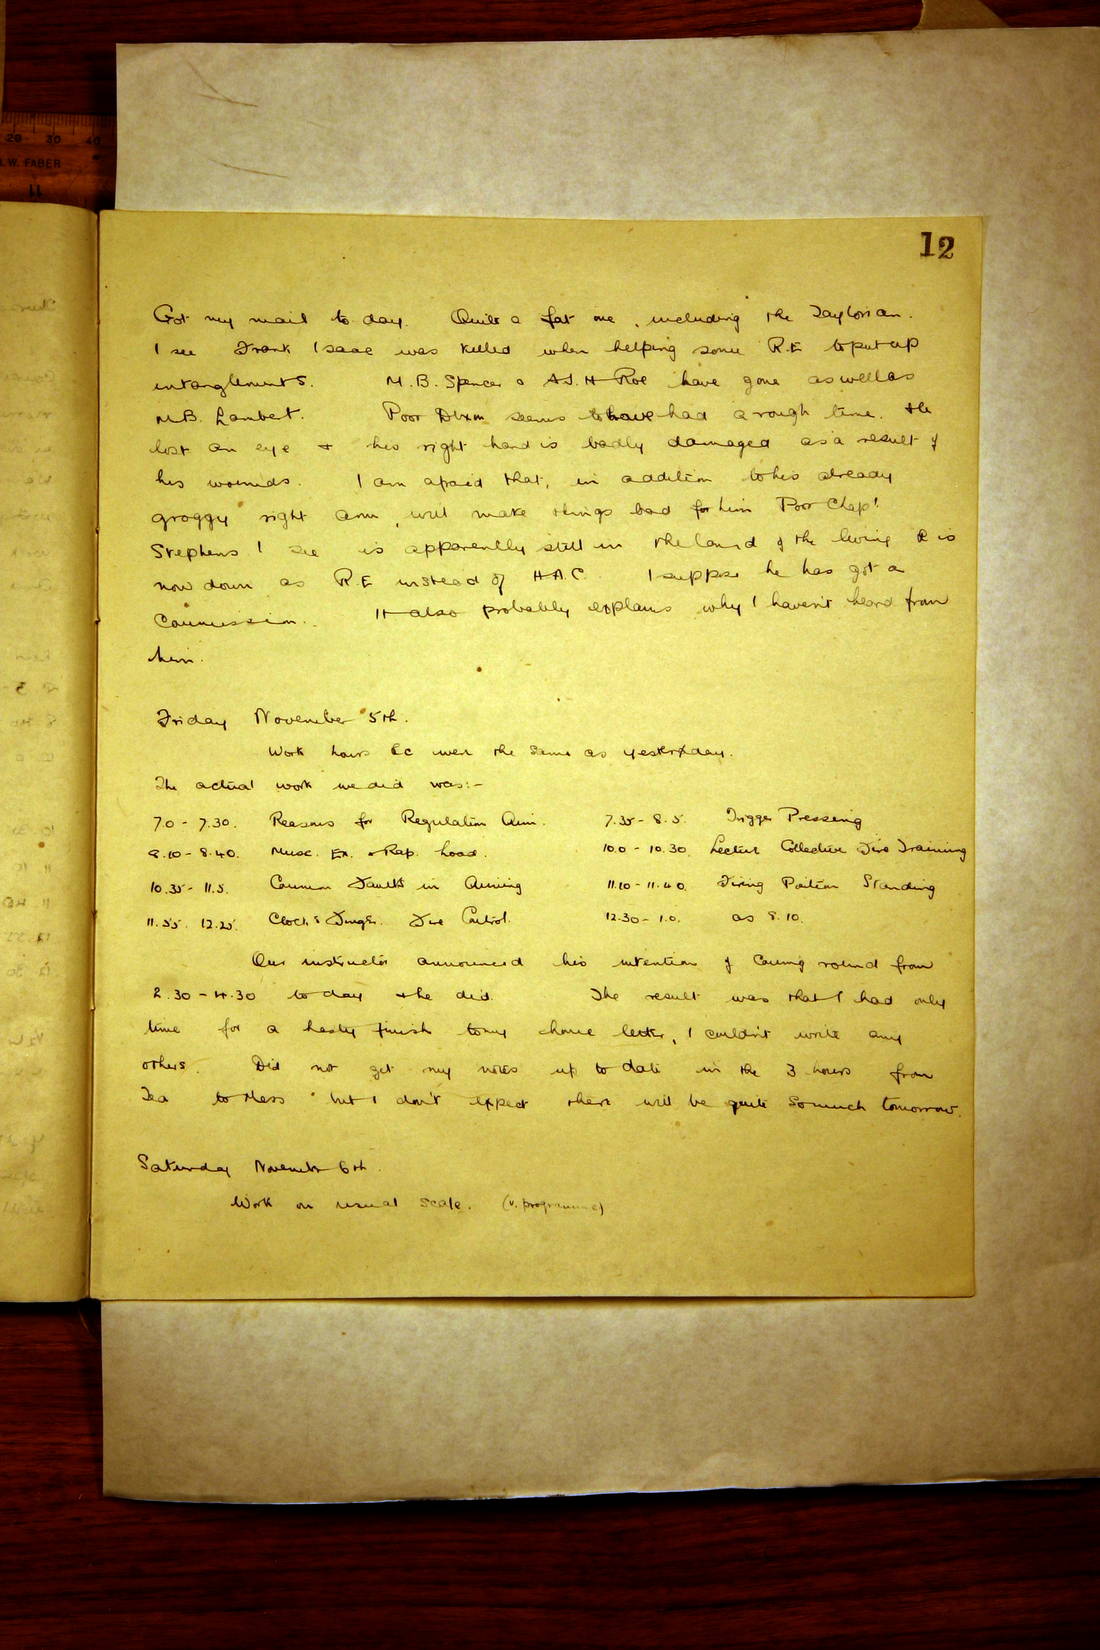 20 30 40
W. FABER
11
12
Got my mail to day. Quite a fat one, including the Taylorian.
I see Frank Isaac was killed when helping some R.E to put up
entanglements. M.B. Spencer & A.J.H Roe have gone as well as
M.B. Lambert. Poor Dixon seems to have had a rough time. He
lost an eye & his right hand is badly damaged as a result of
his wounds. I am afraid that, in addition to his already
groggy right arm, will make things bad for him Poor Chap!
Stephens I see is apparently still in the land of the living & is
now down as R.E instead of H.A.C. I suppose he has got a
Commission. It also probably explains why I haven't heard from
him.
Friday November 5th.
Work hours &c were the same as yesterday.
The actual work we did was:-
7.0 - 7.30. Reasons for Regulation Aim. 7.35 - 8.5. Trigger Pressing
8.10 - 8.40. Musc. Ex. & Rap. Load. 10.0 - 10.30. Lecture Collective Fire Training
10.35 - 11.5. Common Faults in Aiming 11.10 - 11.40. Firing Position Standing
11.55. 12.25. Clock & Finger. Fire Control. 12.30 - 1.0. as 8.10.
Our instructor announced his intention of coming round from
2.30 - 4.30 to day & he did. The result was that I had only
time for a hasty finish to my home letter, I couldn't write any
others. Did not get my notes up to date in the 3 hours from
Tea to Mess but I don't expect there will be quite so much tomorrow.
Saturday November 6th.
Work on usual scale. (v. programme)